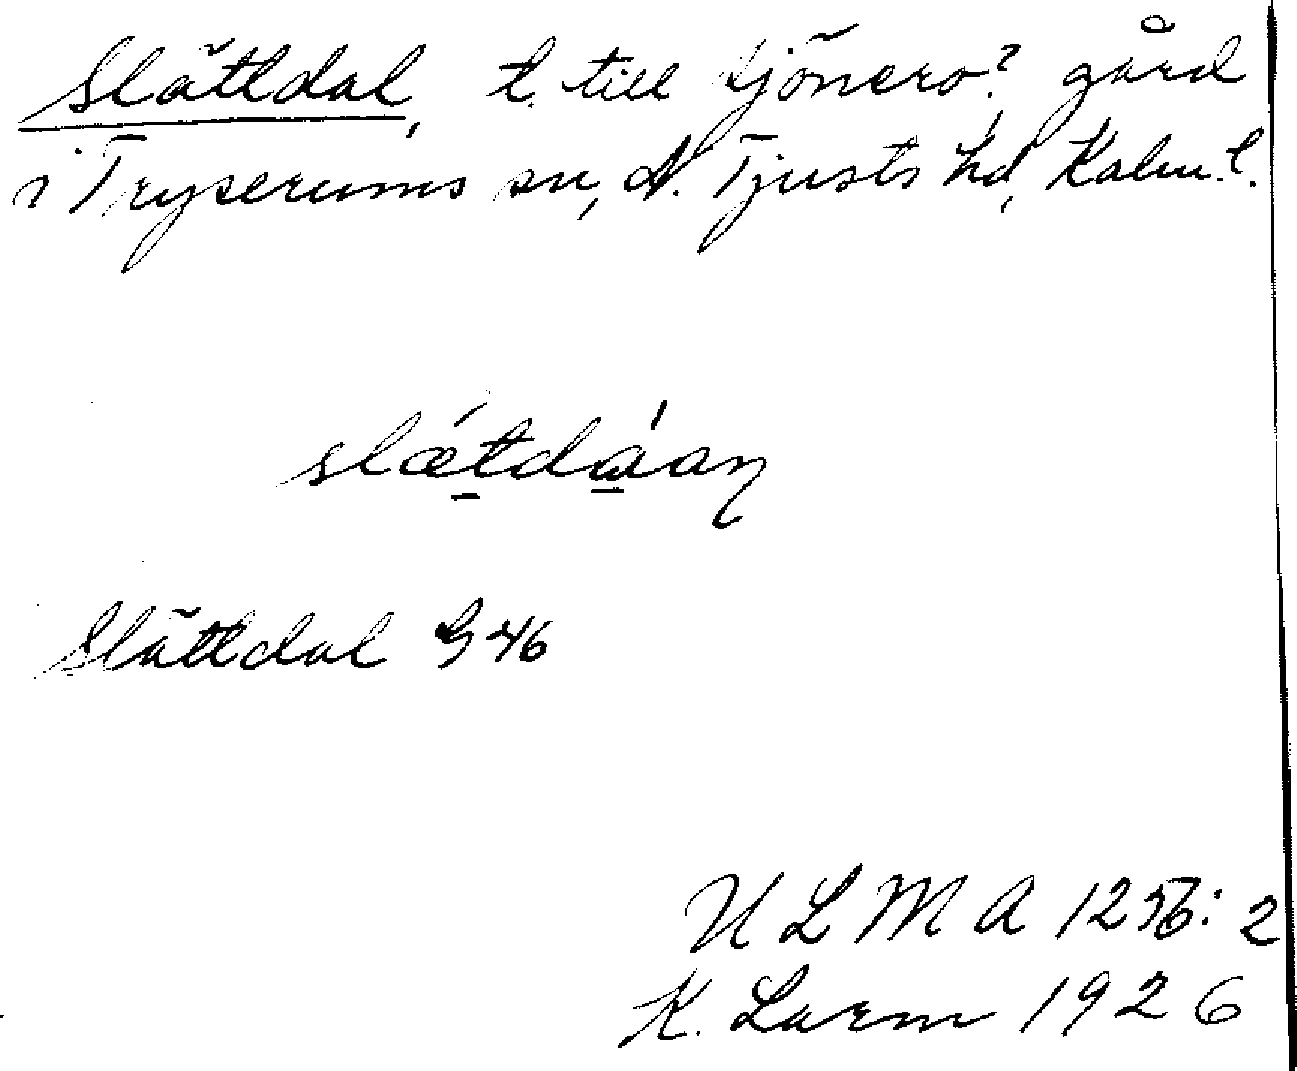 Slättdal, t. till Kjönero? gård
i Tryserums sn, N. Tjusts hd, Kalm. l.
slǽtdáan
Slättdal G 46
U L M A 1256: 2
K. Larm 1926